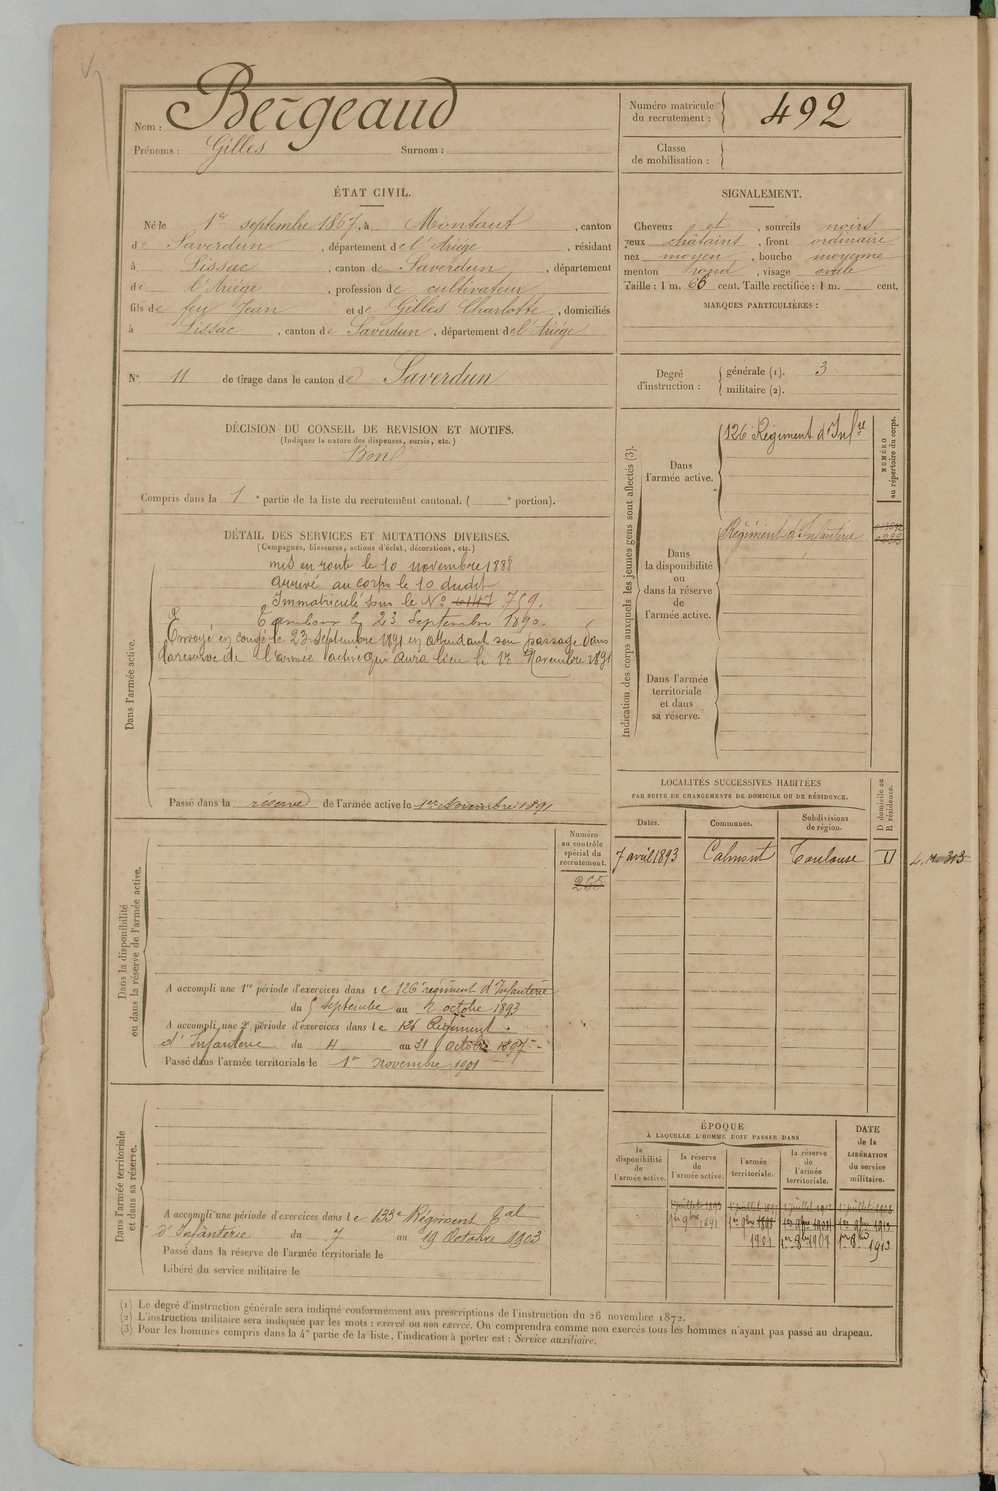 Nom : Bergeaud
Prénoms : Gilles Surnom :
Numéro matricule du recrutement : 492
Classe de mobilisation :
ÉTAT CIVIL.
Né le 1er septembre 1867, à Montaut, canton
de Saverdun, département de l'Ariège, résidant
à Lissac, canton de Saverdun, département
de l'Ariège, profession de cultivateur
fils de feu Jean et de Gilles Charlotte, domiciliés
à Lissac, canton de Saverdun, département de l'Ariège
N° 11 de tirage dans le canton de Saverdun
SIGNALEMENT.
Cheveux et, sourcils noirs
yeux châtains, front ordinaire
nez moyen, bouche moyenne
menton rond, visage ovale
Taille : 1 m. 66 cent. Taille rectifiée : 1 m. cent.
MARQUES PARTICULIÈRES :
Degré d'instruction : générale (1). 3
militaire (2).
DÉCISION DU CONSEIL DE REVISION ET MOTIFS.
(Indiquer la nature des dispenses, sursis, etc.)
Bon
Compris dans la 1e partie de la liste du recrutement cantonal. ( e portion).
DÉTAIL DES SERVICES ET MUTATIONS DIVERSES.
(Campagnes, blessures, actions d'éclat, décorations, etc.)
Dans l'armée active.
mis en route le 10 novembre 1888
arrivé au corps le 10 dudit
Immatriculé sous le N° 6147 759.
Tambour le 23 Septembre 1890.
Envoyé en congé le 23 Septembre 1891 en attendant son passage dans
la réserve de l'armée active qui aura lieu le 1er Novembre 1891
Passé dans la réserve de l'armée active le 1er novembre 1891
Indication des corps auxquels les jeunes gens sont affectés (3).
Dans l'armée active.
126 Régiment d'Infrie
NUMÉRO au répertoire du corps.
Dans la disponibilité ou dans la réserve de l'armée active.
Régiment d'Infanterie
Dans l'armée territoriale et dans sa réserve.
LOCALITÉS SUCCESSIVES HABITÉES
PAR SUITE DE CHANGEMENTS DE DOMICILE OU DE RÉSIDENCE.
Dates. Communes. Subdivisions de région. D domicile ou R résidence.
7 avril 1893 Calmont Toulouse D
Dans la disponibilité ou dans la réserve de l'armée active.
Numéro au contrôle spécial du recrutement.
265
A accompli une 1re période d'exercices dans le 126e régiment d'Infanterie
du 5 septembre au 2 octobre 1893
A accompli une 2e période d'exercices dans le 126 Régiment
d'Infanterie du 4 au 31 octobre 1897
Passé dans l'armée territoriale le 1er novembre 1901
Dans l'armée territoriale et dans sa réserve.
A accompli une période d'exercices dans le 133e Régiment Tal
d'Infanterie du 7 au 19 Octobre 1903
Passé dans la réserve de l'armée territoriale le
Libéré du service militaire le
ÉPOQUE
À LAQUELLE L'HOMME DOIT PASSER DANS
DATE de la LIBÉRATION du service militaire.
la disponibilité de l'armée active. la réserve de l'armée active. l'armée territoriale. la réserve de l'armée territoriale.
1er 9bre 1891
1901 1er 8bre 1907 1er 8bre 1913
(1) Le degré d'instruction générale sera indiqué conformément aux prescriptions de l'instruction du 26 novembre 1872.
(2) L'instruction militaire sera indiquée par les mots : exercé ou non exercé. On comprendra comme non exercés tous les hommes n'ayant pas passé au drapeau.
(3) Pour les hommes compris dans la 4e partie de la liste, l'indication à porter est : Service auxiliaire.